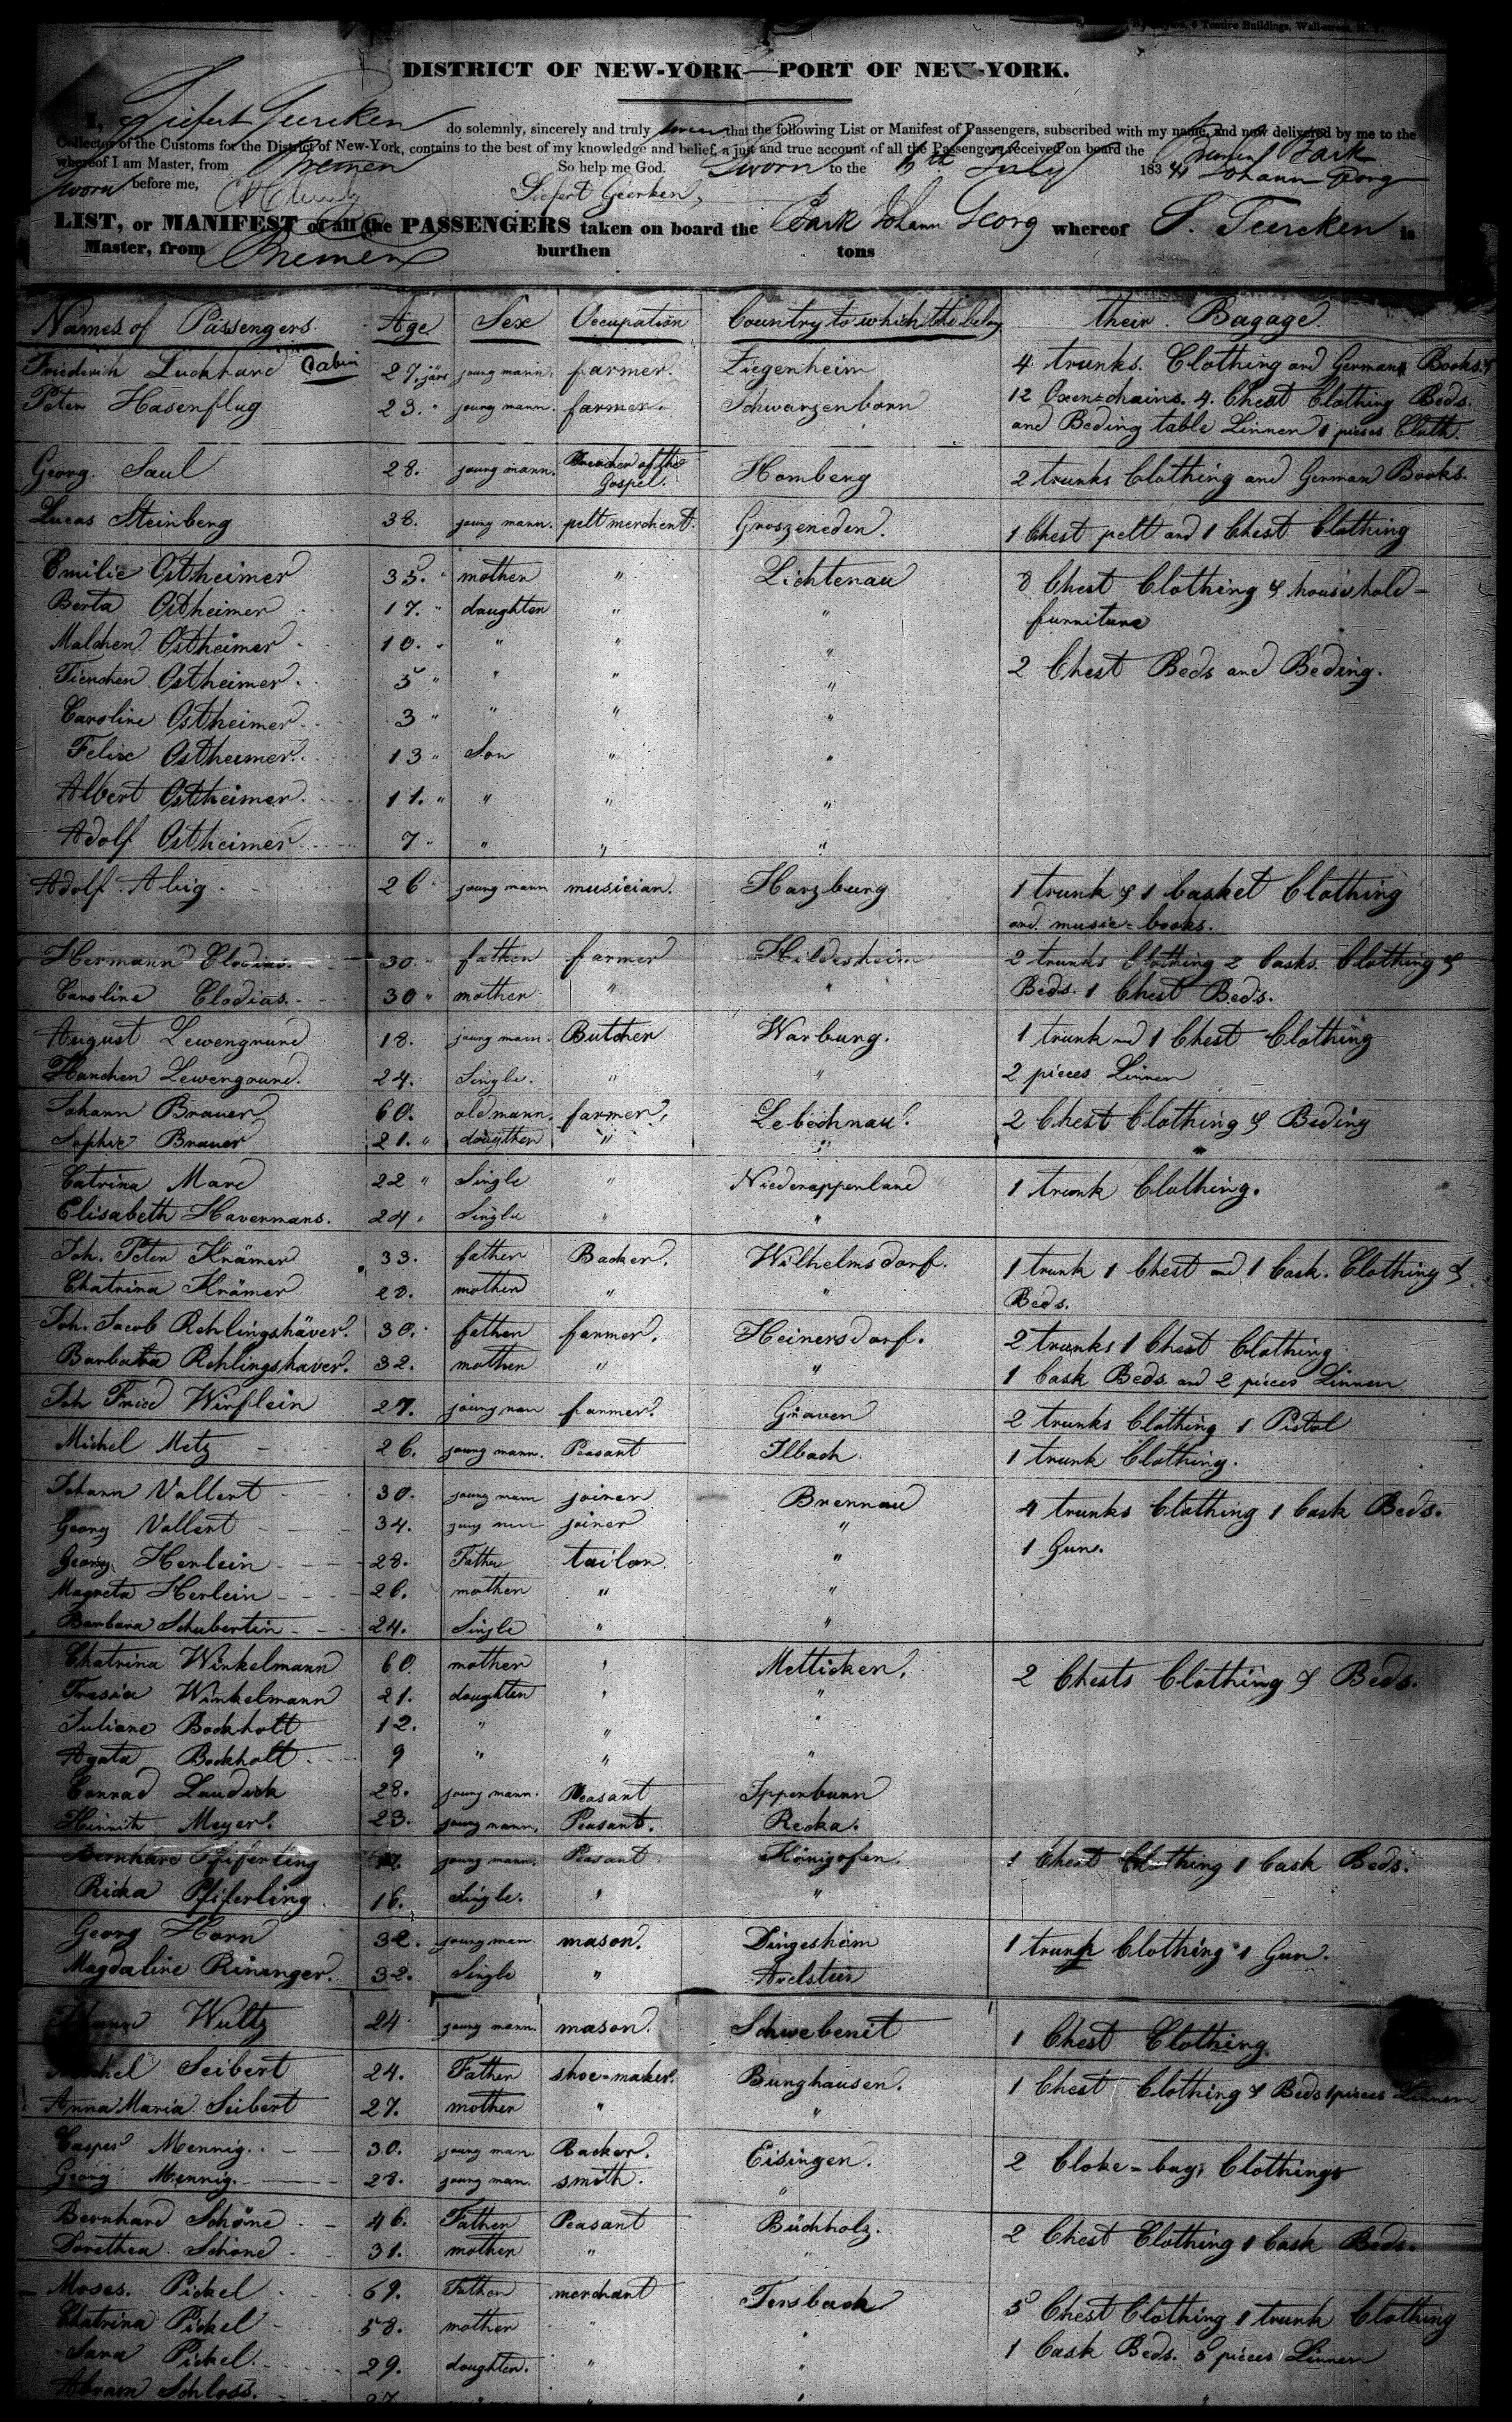 6 Tontine Buildings, Wall-street, N. Y.
DISTRICT OF NEW-YORK—PORT OF NEW-YORK.
I, Siefert Geerken do solemnly, sincerely and truly swear that the following List or Manifest of Passengers, subscribed with my name, and now delivered by me to the
Collector of the Customs for the District of New-York, contains to the best of my knowledge and belief, a just and true account of all the Passengers received on board the Bremen Bark
whereof I am Master, from Bremen So help me God. Sworn to the July 183 41 Johann Georg
Sworn before me, Siefert Geerken,
LIST, or MANIFEST of all the PASSENGERS taken on board the Bark Johann Georg whereof S. Geercken is
Master, from Bremen burthen tons
Names of Passengers. Age Sex Occupation Country to which the belong their Bagage.
Friederich Luckhard Cabin 27. järs young mann. farmer. Ziegenheim 4 trunks. Clothing and German Books &
Peter Hasenflug 23. " young mann. farmer. Schwarzenborn 12 Oxen-chains. 4. Chest Clothing Beds.
and Beding table Linnen 1 pieces Cloth.
Georg. Saul 28. young mann. Preacher of the Gospel. Homberg 2 trunks Clothing and German Books.
Lucas Steinberg 38. young mann. pelt merchent. Groszeneden. 1 Chest pelt and 1 Chest Clothing
Emilie Ostheimer 35. " mother " Lichtenau 8 Chest Clothing & household-
Berta Ostheimer 17. " daughter " " furniture
Malchen Ostheimer 10. " " " "
Fienchen Ostheimer. 5 " " " " 2 Chest Beds and Beding.
Caroline Ostheimer. 3 " " " "
Felix Ostheimer. 13 " Son " "
Albert Ostheimer. 11. " " " "
Adolf Ostheimer 7 " " " "
Adolf Abig 26 young mann musician. Harzburg 1 trunk & 1 basket Clothing
and music-books.
Hermann Clodius. 30. " father farmer Hildesheim 2 trunks Clothing 2 Casks Clothing &
Caroline Clodius. 30 " mother " " Beds. 1 Chest Beds.
August Lewengrund 18. young mann. Butcher Warburg. 1 trunk and 1 Chest Clothing
Hanchen Lewengrund. 24. Single. " " 2 pieces Linnen
Johann Brauer 60. old mann. farmer. Lebechnau. 2 Chest Clothing & Beding
Sophie Brauer 21. " dougther " "
Catrina Mard 22 " Single " Niederappenland 1 trunk Clothing.
Elisabeth Havermans. 24 " Single " "
Joh. Peter Krämer 33. father Backer. Wilhelmsdorf. 1 trunk 1 Chest and 1 Cask. Clothing &
Chatrina Krämer mother " " Beds.
Joh. Jacob Rehlingshäver. 30. father farmer. Heinersdorf. 2 trunks 1 Chest Clothing
Barbara Rehlingshaver. 32. mother " " 1 Cask Beds and 2 pieces Linnen
Joh Fried Wirflein 27. young man farmer. Graven 2 trunks Clothing 1 Pistol
Michel Metz 26. young mann. Peasant Ilbach 1 trunk Clothing.
Johann Vollert 30. young mann joiner Brennau 4 trunks Clothing 1 Cask Beds.
Georg Vollert 34. young man joiner " 1 Gun.
Georg Herlein 28. Father tailor "
Magreta Herlein 26. mother " "
Barbara Schubertin 24. Single " "
Chatrina Winkelmann 60. mother " Metticken. 2 Chests Clothing & Beds.
Winkelmann 21. daughter " "
Juliane Bockholt 12. " " "
Agata Bockholt 9 " " "
Conrad Laudick 28. young mann. Peasant Ippenburen
Hinnrik Meyer. 23. young mann. Peasant. Recka.
Bernhard Pfiferling young mann. Peasant Königofen. 1 Chest Clothing 1 Cask Beds.
Ricka Pfiferling 16. Single. " "
Georg Horn 32. young man mason. Dingesheim 1 trunk Clothing 1 Gun.
Magdaline Rininger. 32. Single " Avelstein
Wultz 24. young mann. mason. Schwebenit 1 Chest Clothing.
Seibert 24. Father shoe-maker. Bunghausen. 1 Chest Clothing & Beds 1 pieces Linnen
Anna Maria Seibert 27. mother " "
Casper Mennig. 30. young man Backer. Eisingen. 2 Cloke-bags Clothings
Georg Mennig. 28. young man. smith. "
Bernhard Schöne 46. Father Peasant Büchholz. 2 Chest Clothing 1 Cask Beds.
Dorethea Schöne 31. mother " "
Moses. Pickel 69. Father merchant Tersbach 5 Chest Clothing 1 trunk Clothing
Chatrina Pickel 58. mother " " 1 Cask Beds. 5 pieces Linnen
Sara Pickel. 29. daughter. " "
Abram Schloss. 27. " "